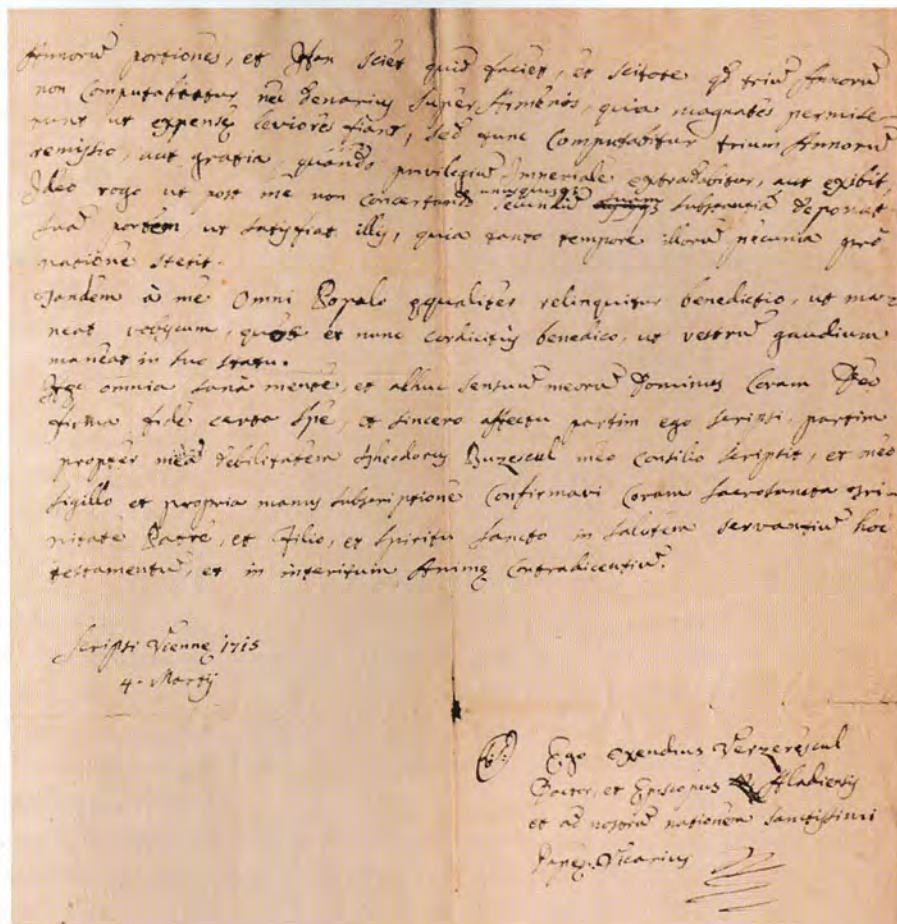 Annorũ portiones, et Jsan sciet quid faciet, et scitote qđ triũ Annorũ
non Computabitur nec denarius super Armenos, quia magnates permise-
runt ut expensę leviores fiant, sed tunc Computabitur trium Annorũ
remissio, aut gratia, quando privilegium Imperiale extradabitur, aut exibit,
Ideo rogo ut post me non concertando unusquisqȝ secundũ substantiã deponat
suã portem, ut satisfiat illis, quia tanto tempore illorũ pecunia pro
natione stetit.
Tandem à me Omni Populo ęqualiter relinquitur benedictio, ut ma-
neat vobiscum, quos et nunc cordicitus benedico, ut vestrũ gaudium
maneat in suo statu.
Hęc omnia sana mente, et adhuc sensuũ meorũ Dominus Coram Deo
firma fide certa spe, et sincero affectu partim ego scripsi, partim
propter meã debilitatem Theodorus Buzescul meo consilio scripsit, et meo
sigillo et propria manus subscriptione Confirmavi Coram Sacrosancta Tri-
nitate Patre, et Filio, et Spiritu Sancto in salutem servantiũ hoc
testamentũ, et in interitum Animę Contradicentiũ.
Scripsi Viennę 1715
4. Martij
Ego Oxendius Verzerescul
Doctor, et Episcopus Aladiensis
et ad nostrã nationem Sanctissimi
Papę Vicarius